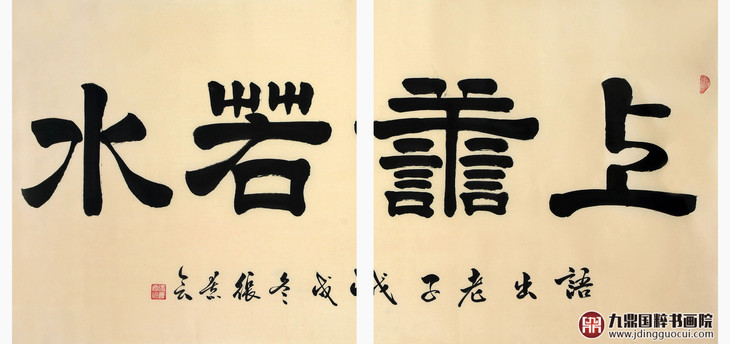 上譱若水
語出老子戊戌冬張景会
九鼎国粹书画院
www.jdingguocui.com